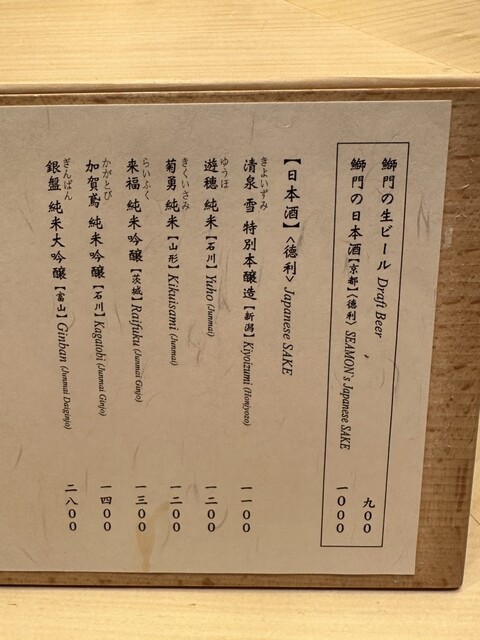 鰤門の生ビール Draft Beer 九〇〇
鰤門の日本酒【京都】〈徳利〉 SEAMON`s Japanese SAKE 一〇〇〇
【日本酒】〈徳利〉 Japanese SAKE
きよいずみ
清泉 雪 特別本醸造【新潟】 Kiyoizumi (Honjyozo) 一一〇〇
ゆうほ
遊穂 純米【石川】 Yuho (Junmai) 一二〇〇
きくいさみ
菊勇 純米【山形】 Kikuisami (Junmai) 一二〇〇
らいふく
来福 純米吟醸【茨城】 Raifuku (Junmai Ginjo) 一三〇〇
かがとび
加賀鳶 純米吟醸【石川】 Kagatobi (Junmai Ginjo) 一四〇〇
ぎんばん
銀盤 純米大吟醸【富山】 Ginban (Junmai Daiginjo) 二八〇〇